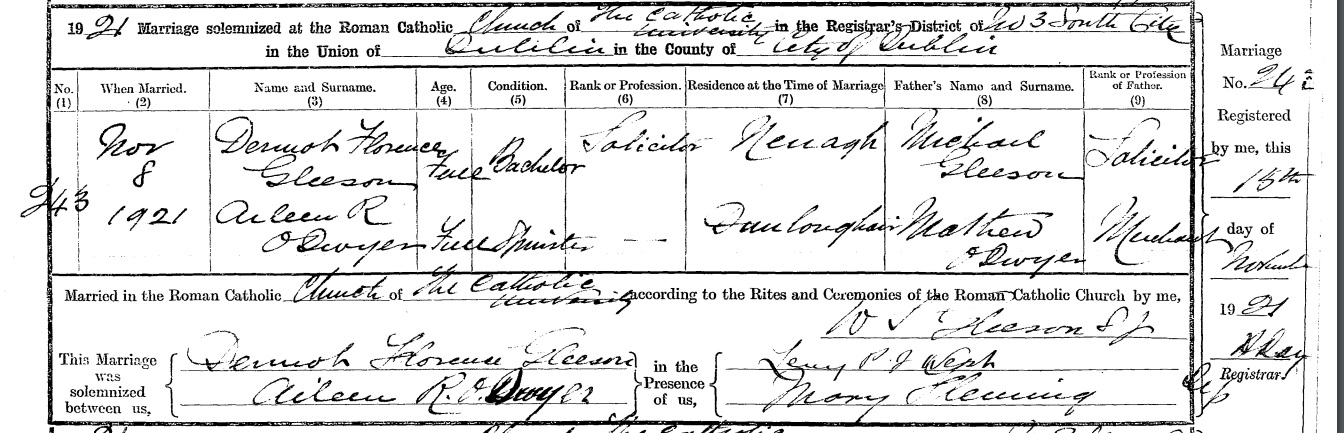 1921 Marriage solemnized at the Roman Catholic Church of The Catholic University in the Registrar's District of No 3 South City
in the Union of Dublin in the County of City of Dublin
No. (1) When Married. (2) Name and Surname. (3) Age. (4) Condition. (5) Rank or Profession. (6) Residence at the Time of Marriage (7) Father's Name and Surname. (8) Rank or Profession of Father. (9)
243 Nov 8 1921
Dermot Florence Gleeson Full Bachelor Solicitor Nenagh Michael Gleeson Solicitor
Aileen R O'Dwyer Full Spinster — Dunloaghaire Mathew O'Dwyer Merchant
Married in the Roman Catholic Church of The Catholic University according to the Rites and Ceremonies of the Roman Catholic Church by me,
W J Gleeson S J
This Marriage was solemnized between us,
Dermot Florence Gleeson
Aileen R. O'Dwyer
in the Presence of us,
P J
Mary Fleming
Marriage
No. 24
Registered
by me, this
15th
day of
November
1921
Registrar.